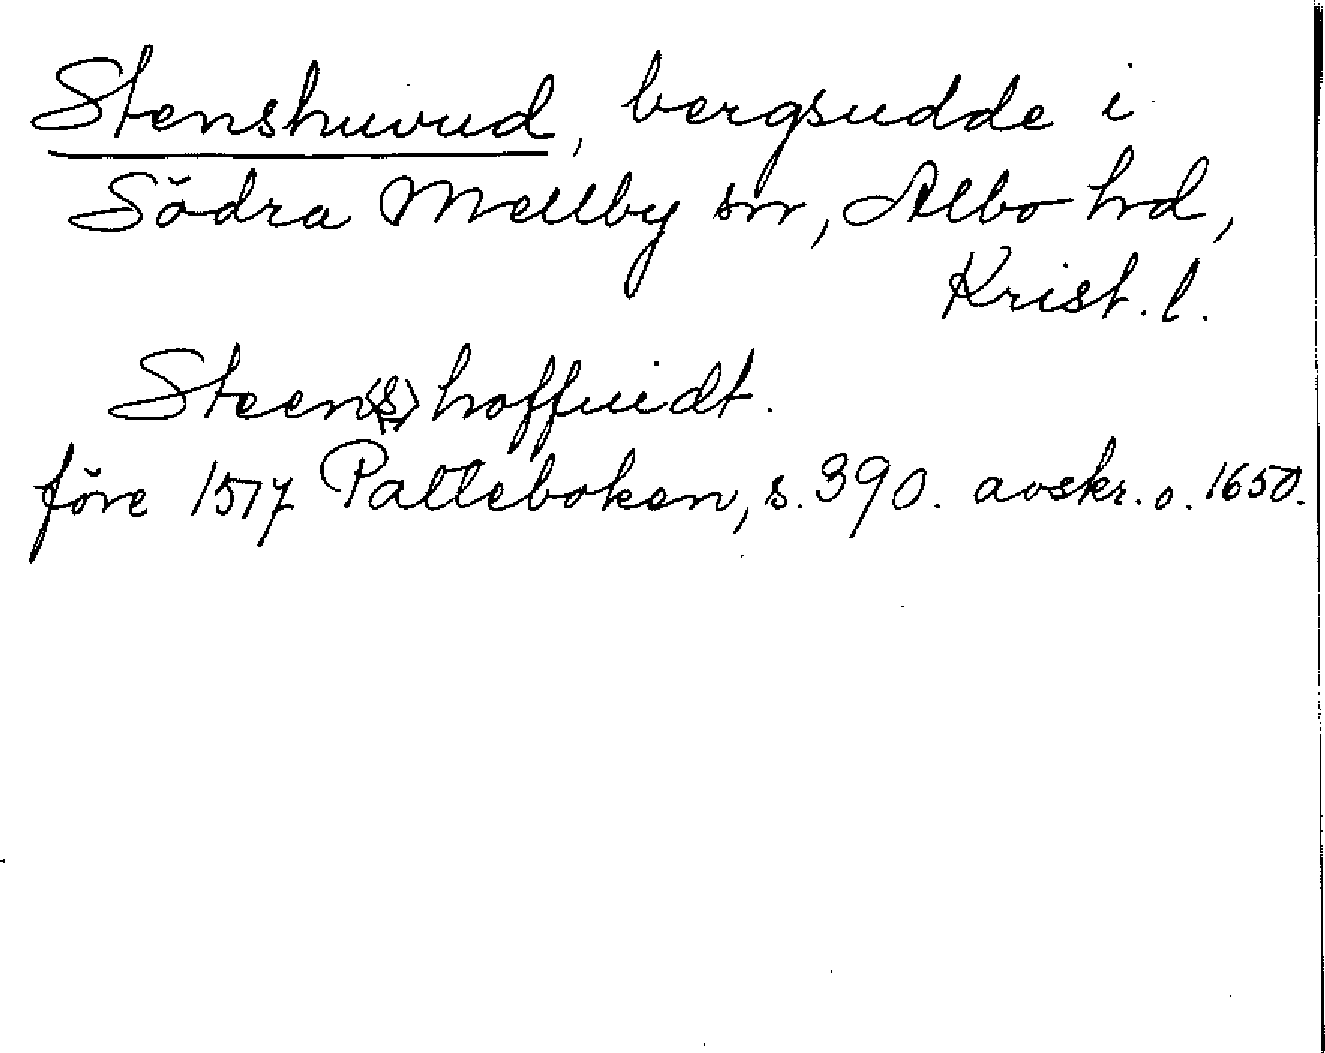 Stenshuvud, bergsudde i
Södra Mellby sn, Albo hd,
Krist. l.
Steen(s)hoffuidt.
före 1517 Palteboken, s. 390. avskr. o. 1650.